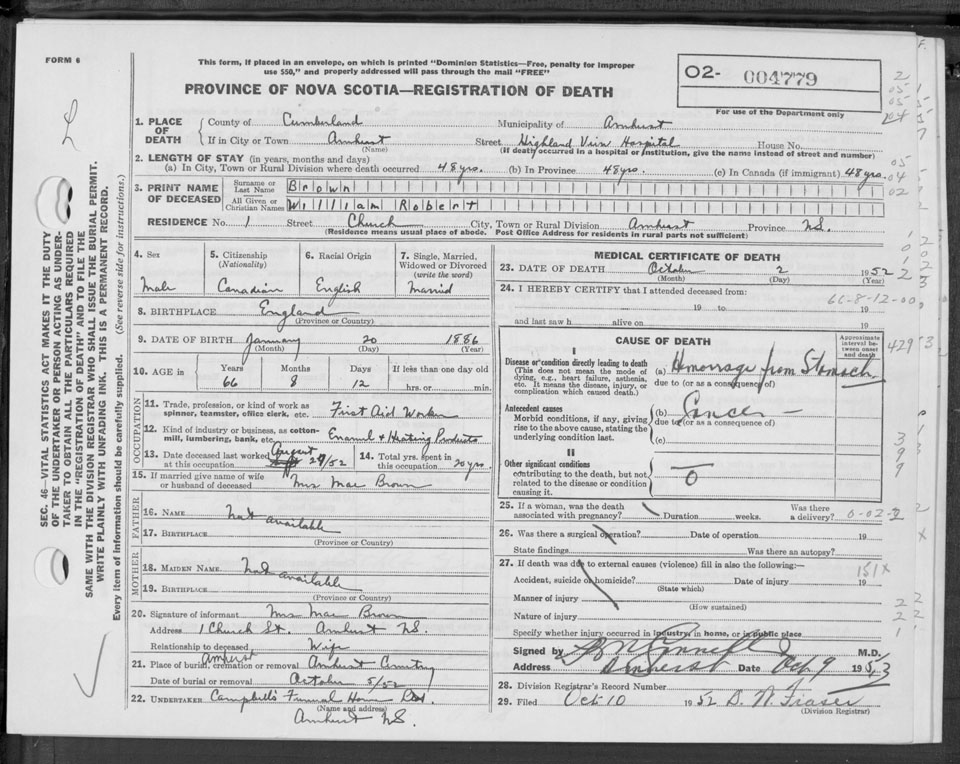 FORM 6
This form, if placed in an envelope, on which is printed "Dominion Statistics—Free, penalty for improper
use $50," and properly addressed will pass through the mail "FREE"
PROVINCE OF NOVA SCOTIA—REGISTRATION OF DEATH
02- 004779
For use of the Department only
SEC. 46—VITAL STATISTICS ACT MAKES IT THE DUTY
OF THE UNDERTAKER OR PERSON ACTING AS UNDER-
TAKER TO OBTAIN ALL THE PARTICULARS REQUIRED
IN THE "REGISTRATION OF DEATH" AND TO FILE THE
SAME WITH THE DIVISION REGISTRAR WHO SHALL ISSUE THE BURIAL PERMIT.
WRITE PLAINLY WITH UNFADING INK. THIS IS A PERMANENT RECORD.
Every item of information should be carefully supplied. (See reverse side for instructions.)
1. PLACE OF DEATH County of Cumberland Municipality of Amherst
If in City or Town Amherst Street Highland View Hospital House No.
(Name) (If death occurred in a hospital or institution, give the name instead of street and number)
2. LENGTH OF STAY (in years, months and days)
(a) In City, Town or Rural Division where death occurred 48 yrs. (b) In Province 48 yrs. (c) In Canada (if immigrant) 48 yrs.
3. PRINT NAME OF DECEASED Surname or Last Name Brown
All Given or Christian Names William Robert
RESIDENCE No. 1 Street Church City, Town or Rural Division Amherst Province N.S.
(Residence means usual place of abode. Post Office Address for residents in rural parts not sufficient)
4. Sex Male
5. Citizenship (Nationality) Canadian
6. Racial Origin English
7. Single, Married, Widowed or Divorced (write the word) Married
8. BIRTHPLACE England
(Province or Country)
9. DATE OF BIRTH January 20 1886
(Month) (Day) (Year)
10. AGE in Years 66 Months 8 Days 12 If less than one day old
hrs. or min.
OCCUPATION
11. Trade, profession or kind of work as
spinner, teamster, office clerk, etc. First Aid Worker
12. Kind of industry or business, as cotton-
mill, lumbering, bank, etc. Enamel & Heating Products
13. Date deceased last worked at this occupation August 29/52
14. Total yrs. spent in this occupation 20 yrs.
15. If married give name of wife
or husband of deceased Mrs Mae Brown
FATHER
16. NAME Not available
17. BIRTHPLACE
(Province or Country)
MOTHER
18. MAIDEN NAME Not available
19. BIRTHPLACE
(Province or Country)
20. Signature of informant Mrs Mae Brown
Address 1 Church St. Amherst N.S.
Relationship to deceased Wife
21. Place of burial, cremation or removal Amherst Cemetery
Amherst
Date of burial or removal October 5/52
22. UNDERTAKER Campbell's Funeral Home Ltd
(Name and address)
Amherst N.S.
MEDICAL CERTIFICATE OF DEATH
23. DATE OF DEATH October 2 1952
(Month) (Day) (Year)
24. I HEREBY CERTIFY that I attended deceased from:
66-8-12-00
19 to 19
and last saw h alive on 19
CAUSE OF DEATH
Approximate interval between onset and death
I
Disease or condition directly leading to death
(This does not mean the mode of
dying, e.g., heart failure, asthenia,
etc. It means the disease, injury, or
complication which caused death.)
(a) Hemorrage from Stomach
due to (or as a consequence of)
Antecedent causes
Morbid conditions, if any, giving
rise to the above cause, stating the
underlying condition last.
(b) Cancer —
due to (or as a consequence of)
(c)
II
Other significant conditions
contributing to the death, but not
related to the disease or condition
causing it.
0
25. If a woman, was the death
associated with pregnancy? Duration weeks. Was there a delivery?
26. Was there a surgical operation? Date of operation 19
State findings Was there an autopsy?
27. If death was due to external causes (violence) fill in also the following:—
151X
Accident, suicide or homicide? Date of injury 19
(State which)
Manner of injury
(How sustained)
Nature of injury
Specify whether injury occurred in industry, in home, or in public place
Signed by M.D.
Address Amherst Date Oct 9 195
28. Division Registrar's Record Number
29. Filed Oct 10 1952 D. W. Fraser
(Division Registrar)